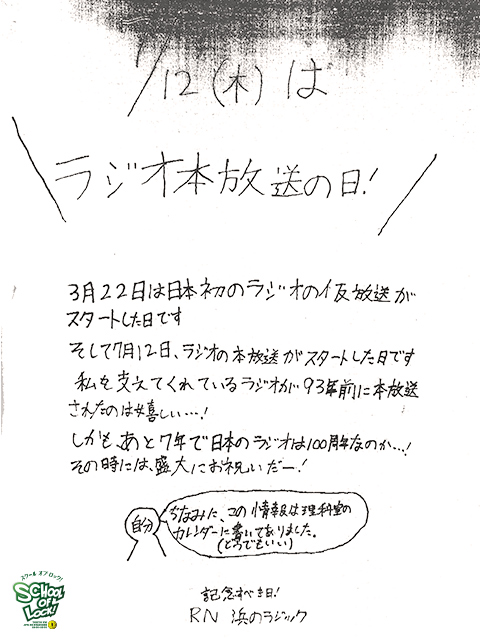 7/12(木)は
ラジオ本放送の日!
3月22日は日本初のラジオの仮放送が
スタートした日です
そして7月12日、ラジオの本放送がスタートした日です
私を支えてくれているラジオが93年前に本放送
されたのは嬉しい…!
しかも、あと7年で日本のラジオは100周年なのか…!
その時には、盛大にお祝いだー!
自分
ちなみに、この情報は理科室の
カレンダーに書いてありました。
(どうでもいい)
記念すべき日!
RN 浜のラジック
スクール オブ ロック!
SCHOOL
OF
LOCK!